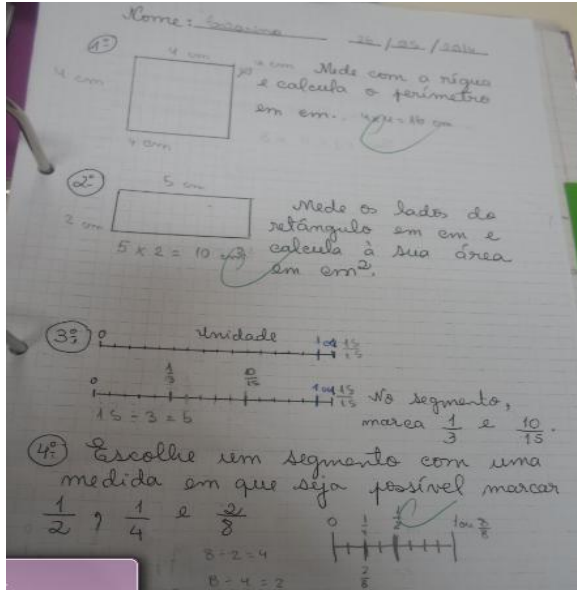 Nome:
1º
4 cm
4 cm
4 cm
4 cm
Mede com a régua
e calcula o perímetro
em cm. 4x4=16 cm
2º
5 cm
2 cm
5 x 2 = 10 cm²
Mede os lados do
retângulo em cm e
calcula à sua área
em cm².
3º
0 Unidade 1 ou 15/15
0 1/3 10/15 1 ou 15/15
15 ÷ 3 = 5
No segmento,
marca 1/3 e 10/15.
4º Escolhe um segmento com uma
medida em que seja possível marcar
1/2, 1/4 e 2/8
0 1/4 1/2 1 ou 8/8
2/8
8 ÷ 2 = 4
8 ÷ 4 = 2